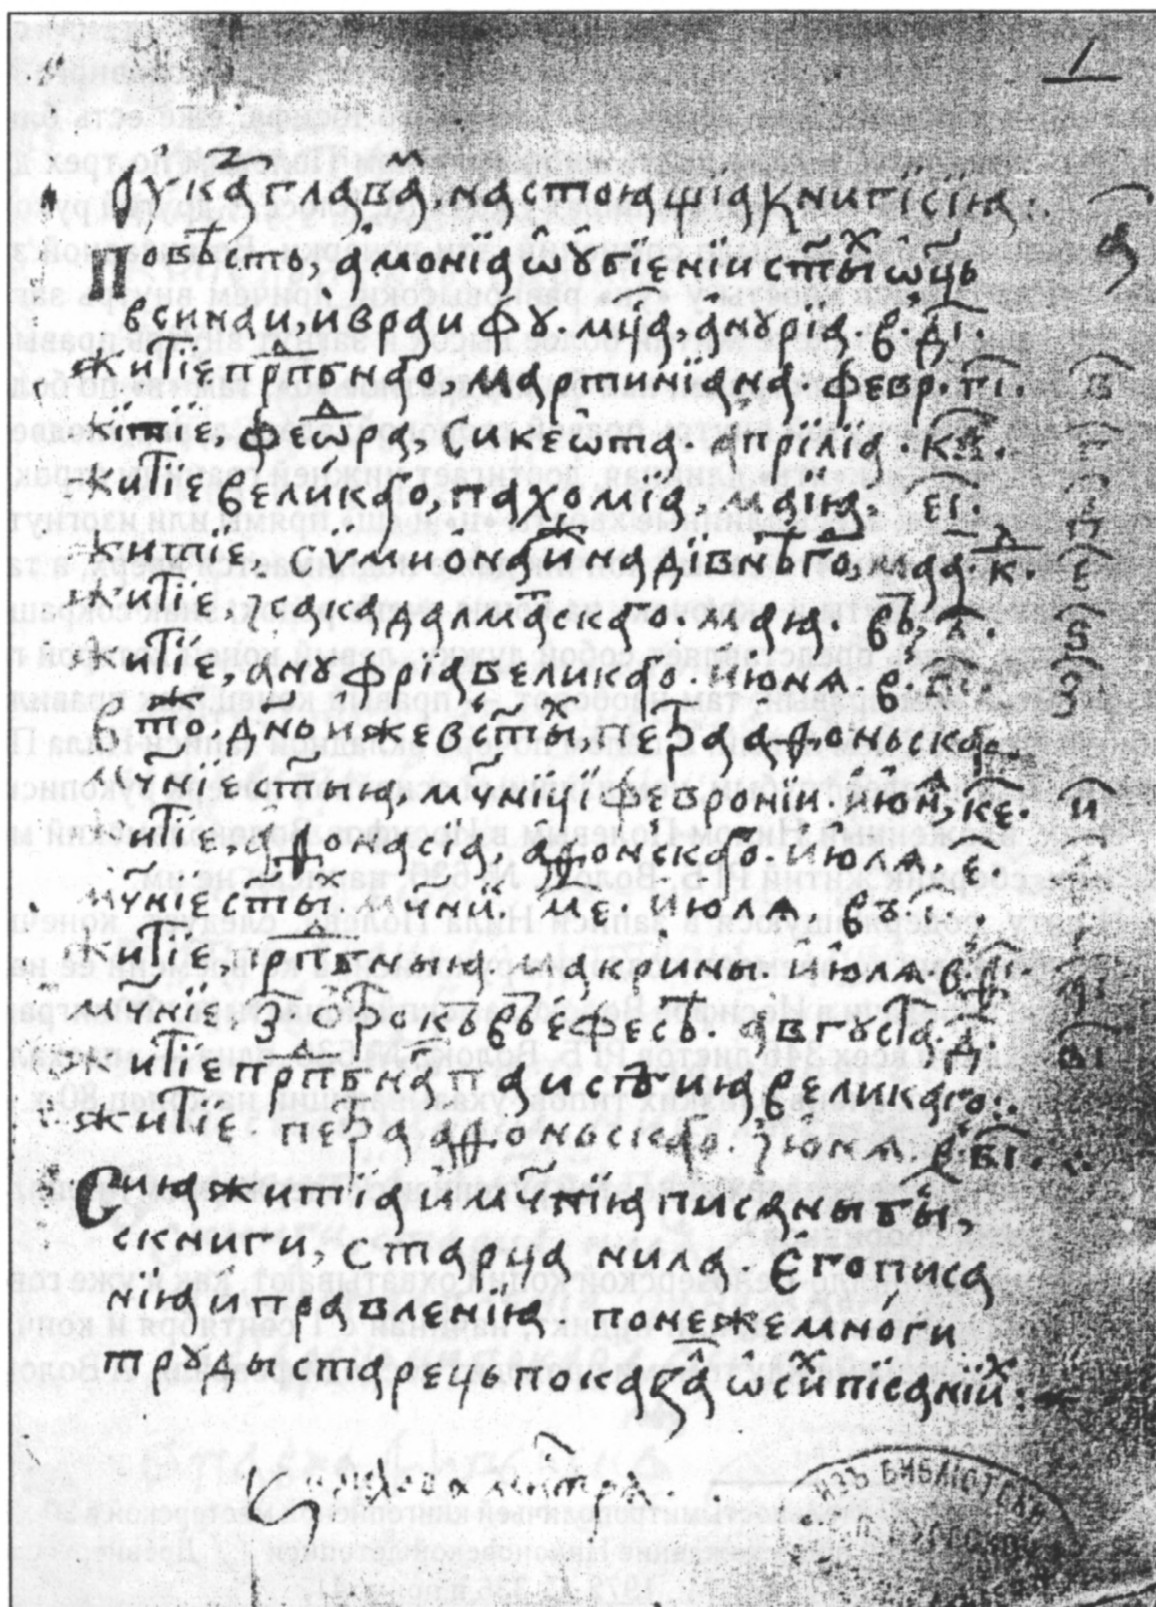 1
Сука҃ глава҃м, настоющїа книгїсїю:.
Повѣсть, амонїа ѡ҆убїенїи ст҃ы́х ѡц҃ь а҃
всинаи, ивраифу. мц҃а, анурїа в. д҃і.
житїе прⷣпб҃наⷢо. мартинїана. февр. г҃і. в҃
житїе, феѡⷣра, сикеѡта. апрїлїа. к҃в. г҃
житїе великаⷢо, пахомїа, маїю, е҃і. д҃
житїе. сѵмиона инадївнѣⷨго, маа. к҃д. е҃
житїе ісака далмаⷮскаго. маю. въ, л҃. ѕ҃
житїе, ануфрїа великаⷢо. июнѧ. в. в҃і. з҃
втоⷤ, днь ижевст҃ы́х, петра афоньскаⷢо
мч҃нїе ст҃ыю, мч҃ницї февронїи. июнⷧ, к҃е. и҃
житїе, афонасїа, афонскаⷢо. июлѧ. е҃
мч҃нїе ст҃ы́х. мч҃ник. м҃е. июлѧ. въ і҃.
житїе, прⷣпб҃ныю макрины. июлѧ. в. ѳ҃і. а҃і
мч҃нїе. з҃ ѻтрокъ въ ефесѣ. августа. д҃. в҃і
житїе прⷣпб҃наⷢ паисѣию великаго:.
житїе петра афоньскаⷢо. июнѧ. в. в҃і.
Сию житїа имч҃нїю писаны бы,
скниги, старца нила. Егописа
нїю иправленїю. понежемноги
труды старець показа ѡсихъ писанїих.
изъ библіотеки